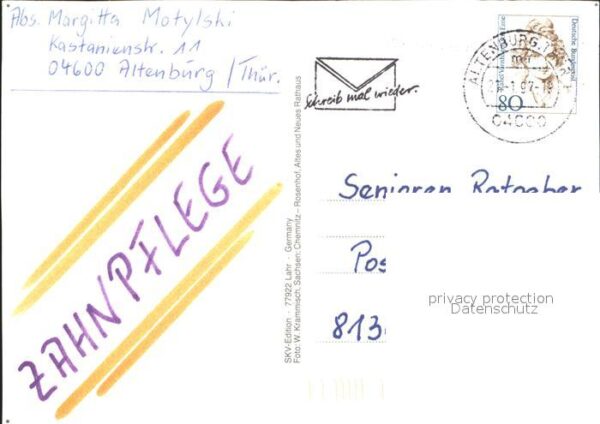 Abs. Margitta Motylski
Kastanienstr. 11
04600 Altenburg / Thür.
ZAHNPFLEGE
SKV-Edition · 77922 Lahr · Germany
Foto: W. Krammisch, Sachsen: Chemnitz – Rosenhof, Altes und Neues Rathaus
Schreib mal wieder.
ALTENBURG
04600
Deutsche Bundespost
80
Senioren Ratgeber
Pos
813
privacy protection
Datenschutz